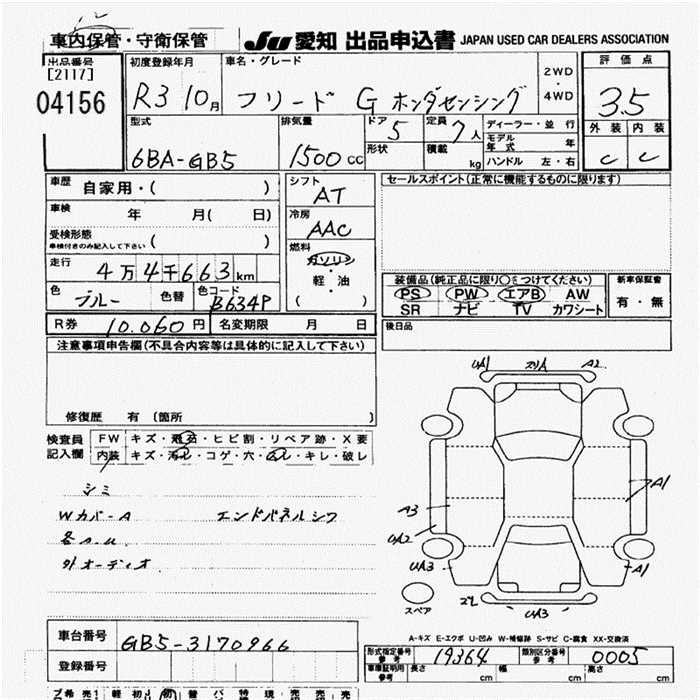 車内保管・守衛保管
JU 愛知 出品申込書 JAPAN USED CAR DEALERS ASSOCIATION
出品番号
[2117]
04156
初度登録年月
R3 10月
車名・グレード
フリード G ホンダセンシング
2WD
・
4WD
評価点
3.5
外装 内装
C C
型式
6BA-GB5
排気量
1500 CC
ドア 5
形状
定員 7人
積載 kg
ディーラー・並行
モデル年式 年
ハンドル 左・右
車歴 自家用・( )
車検 年 月( 日)
受検形態
車検付きのみ記入して下さい ( )
走行 4万4千663km
色 ブルー 色替 色コード B634P
シフト
AT
冷房
AAC
燃料
ガソリン
・
軽・油
( )
セールスポイント(正常に機能するものに限ります)
装備品(純正品に限り○をつけてください)
PS PW エアB AW
SR ナビ TV カワシート
新車保証書
有・無
後日品
R券 10.060円 名変期限 月 日
注意事項申告欄(不具合内容等は具体的に記入して下さい)
修復歴 有 〔箇所 〕
検査員
記入欄
FW キズ・飛石・ヒビ割・リペア跡・X要
内装 キズ・汚れ・コゲ・穴・スレ・キレ・破レ
シミ
Wカバー A エンドパネルシワ
各A.U
外オーディオ
UA1 A2
A3
UA2
UA3
A1
A1
UA3
スペア
A-キズ E-エクボ U-凹み W-補修跡 S-サビ C-腐食 XX-交換済
車台番号 GB5-3170966
登録番号
形式指定番号
参考 19364
類別区分番号
参考 0005
車庫証明用
参考
長さ cm 幅 cm 高さ cm